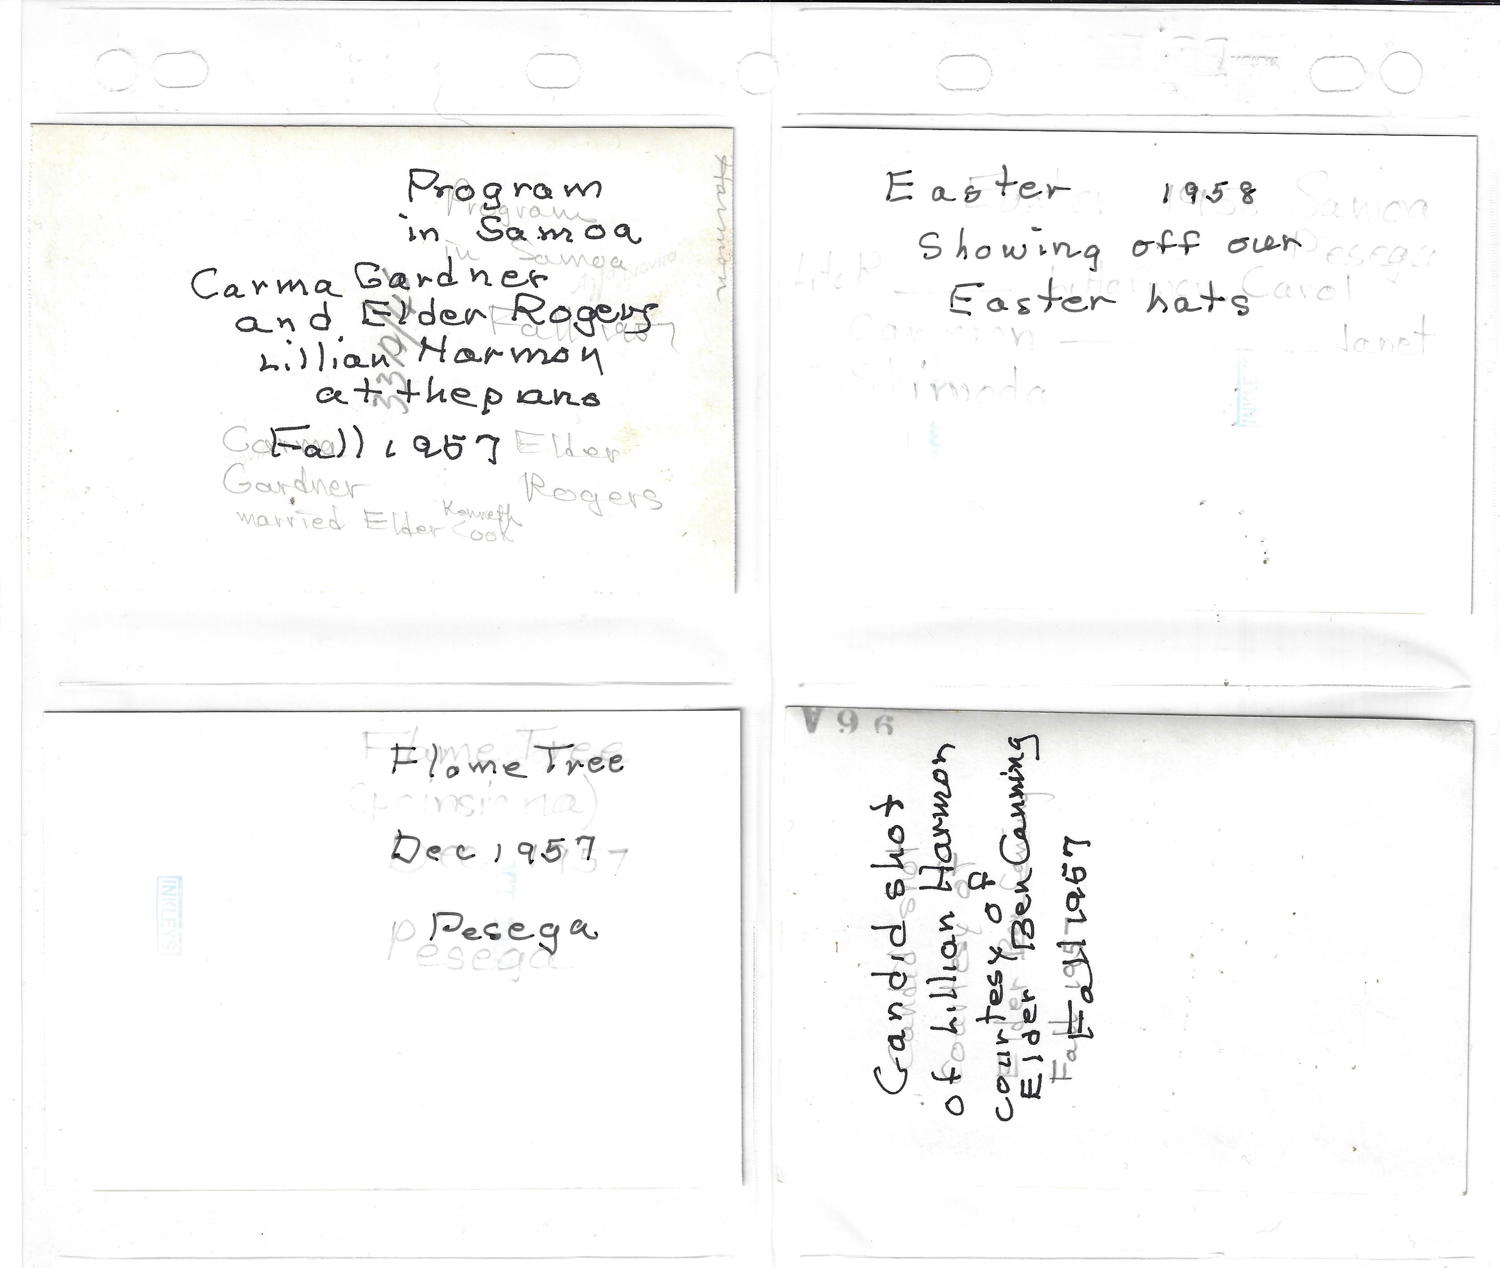 Program
in Samoa
Carma Gardner
and Elder Rogers
Lillian Harmon
at the piano
Fall 1957
Program
in Samoa
Fall 1957
Carma Elder
Gardner Rogers
married Elder Kenneth Cook
Harmon
Easter 1958
Showing off our
Easter hats
Samoa
Pesega
Carol
Janet
Flame Tree
Dec 1957
Pesega
Flame Tree
Pesega
INKLEYS
V96
Candid shot
of Lillian Harmon
courtesy of
Elder Ben Canning
Fall 1957
Fall 1957